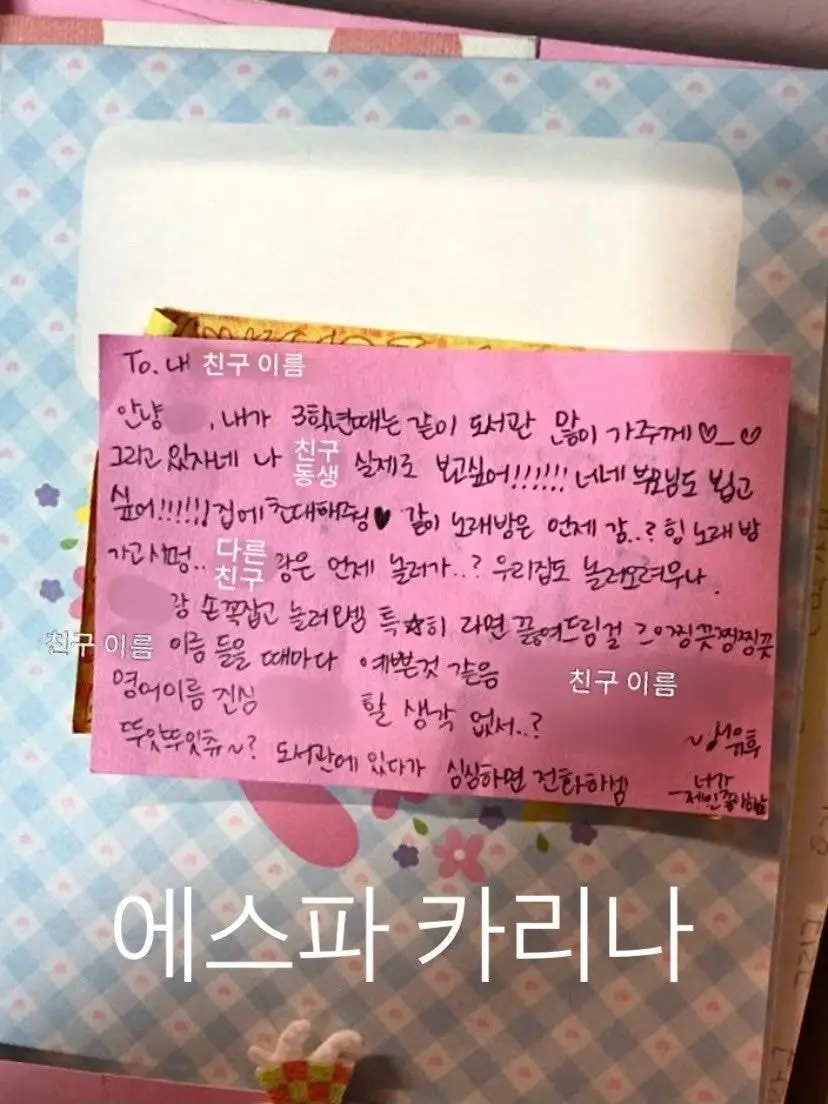 To. 내 친구 이름
안냥 , 내가 3학년때는 같이 도서관 많이 가주께♡_♡
그리고 있자네 나 친구 동생 실제로 보고싶어!!!!!! 너네 부모님도 뵙고
싶어!!!!!! 집에 초대해줭♥ 같이 노래방은 언제 감..? 힝 노래방
가고시펑.. 다른 친구 랑은 언제 놀러가..? 우리집도 놀러오려무나.
랑 손꼭잡고 놀러오셈 특☆히 라면 끓여드림걸
친구 이름 이름 들을 때마다 예쁜것 같음
영어이름 진심 친구 이름 할 생각 없서..?
뚜앗뚜잇츄~? 도서관에 있다가 심심하면 전화하셈
너가
제인
에스파 카리나